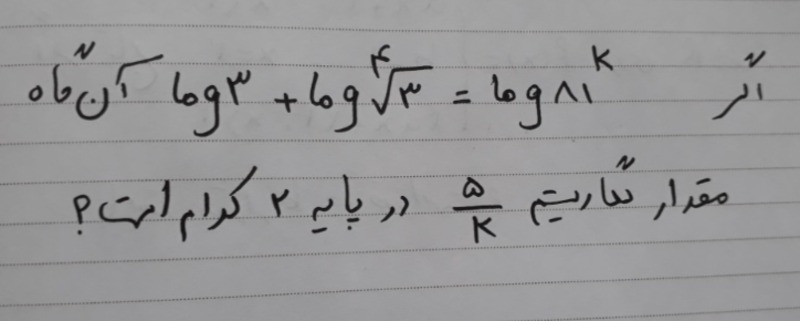 اگر log ۳ + log ∜۳ = log ۸۱^K آن گاه
مقدار لگاریتم ۵/K در پایه ۲ کدام است؟